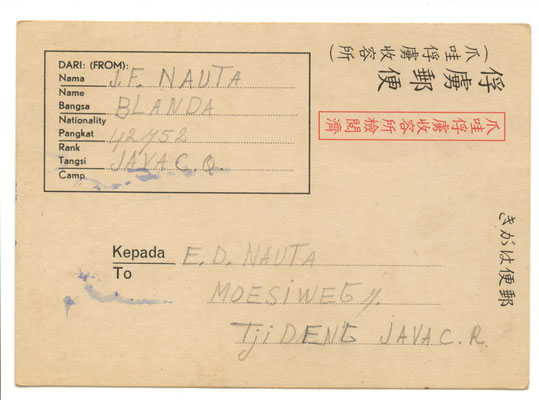 DARI: (FROM):
Nama J. F. NAUTA
Name
Bangsa BLANDA
Nationality
Pangkat 42452
Rank
Tangsi JAVA C. O.
Camp
俘虜郵便
(爪哇俘虜收容所)
爪哇俘虜收容所檢閱濟
郵便はがき
Kepada E. D. NAUTA
To
MOESIWEG
TjiDENG JAVA C. R.